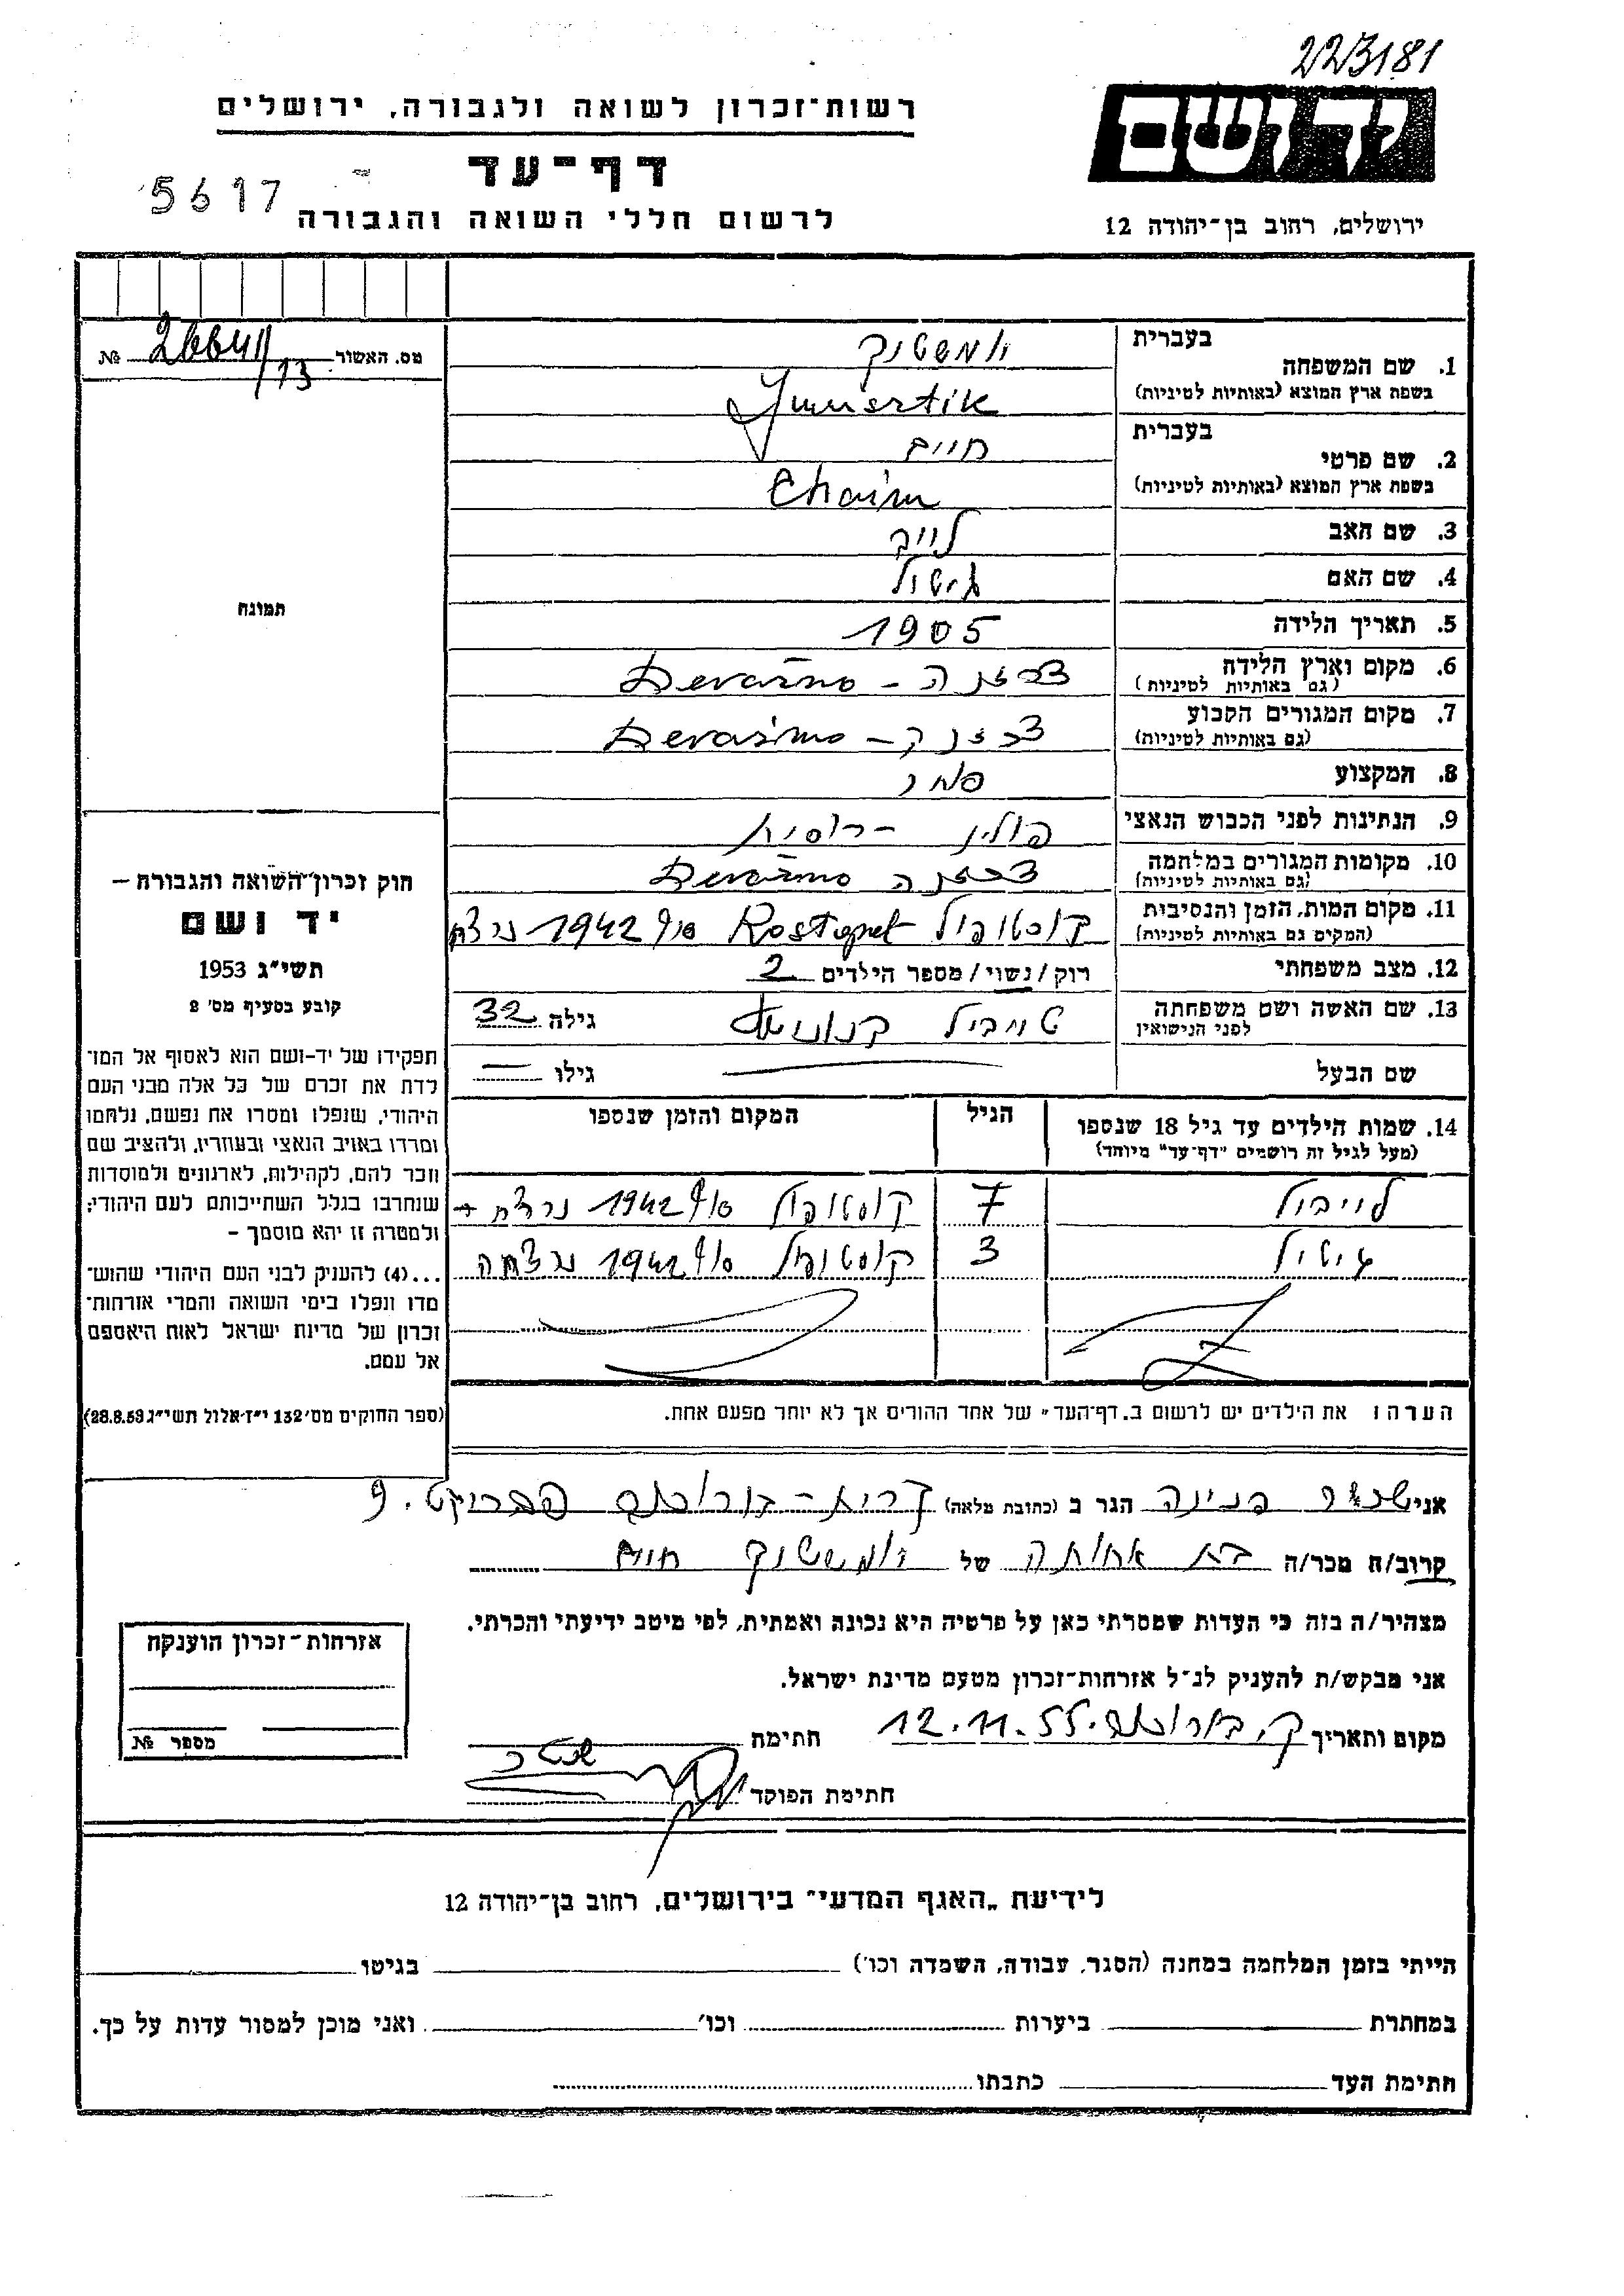 223181
יד ושם
רשות־זכרון לשואה ולגבורה, ירושלים
דף־עד
5617
לרשום חללי השואה והגבורה
ירושלים, רחוב בן־יהודה 12
מס. האשור № 26641/13
תמונה
1. שם המשפחה
בעברית
בשפת ארץ המוצא (באותיות לטיניות)
2. שם פרטי
בעברית חיים
בשפת ארץ המוצא (באותיות לטיניות) Chaim
3. שם האב לייב
4. שם האם גיטול
5. תאריך הלידה 1905
6. מקום וארץ הלידה
(גם באותיות לטיניות)
7. מקום המגורים הקבוע
(גם באותיות לטיניות)
8. המקצוע סוחר
9. הנתינות לפני הכבוש הנאצי פולין - רוסית
10. מקומות המגורים במלחמה
(גם באותיות לטיניות)
11. מקום המות, הזמן והנסיבות קוסטופול Kostopol סוף 1942 נרצח
(המקום גם באותיות לטיניות)
12. מצב משפחתי רוק/נשוי/מספר הילדים 2
13. שם האשה ושם משפחתה טייבל גילה 32
לפני הנישואין
שם הבעל גילו
14. שמות הילדים עד גיל 18 שנספו הגיל המקום והזמן שנספו
(מעל לגיל זה רושמים "דף־עד" מיוחד)
לייבול 7 קוסטופול סוף 1942 נרצח
גיטול 3 קוסטופול סוף 1942 נרצחה
הערה: את הילדים יש לרשום ב„דף־העד" של אחד ההורים אך לא יותר מפעם אחת.
חוק זכרון־השואה והגבורה –
יד ושם
תשי״ג 1953
קובע בסעיף מס' 2
תפקידו של יד-ושם הוא לאסוף אל המו־
לדת את זכרם של כל אלה מבני העם
היהודי, שנפלו ומסרו את נפשם, נלחמו
ומרדו באויב הנאצי ובעוזריו, ולהציב שם
וזכר להם, לקהילות, לארגונים ולמוסדות
שנחרבו בגלל השתייכותם לעם היהודי;
ולמטרה זו יהא מוסמך –
...(4) להעניק לבני העם היהודי שהוש־
מדו ונפלו בימי השואה והמרי אזרחות־
זכרון של מדינת ישראל לאות היאספם
אל עמם.
(ספר החוקים מס׳ 132 י״ז אלול תשי״ג 28.8.53)
אני פנינה הגר ב (כתובת מלאה) קרית - בורוכוב 9
קרוב/ה מכר/ה בת אחותה של חיים
מצהיר/ה בזה כי העדות שמסרתי כאן על פרטיה היא נכונה ואמתית, לפי מיטב ידיעתי והכרתי.
אני מבקש/ת להעניק לנ״ל אזרחות־זכרון מטעם מדינת ישראל.
מקום ותאריך ק. בורוכוב. 12.11.55 חתימה
חתימת הפוקד
אזרחות־זכרון הוענקה
מספר №
לידיעת „האגף המדעי" בירושלים, רחוב בן־יהודה 12
הייתי בזמן המלחמה במחנה (הסגר, עבודה, השמדה וכו') בגיטו
במחתרת ביערות וכו' ואני מוכן למסור עדות על כך.
חתימת העד כתבתו